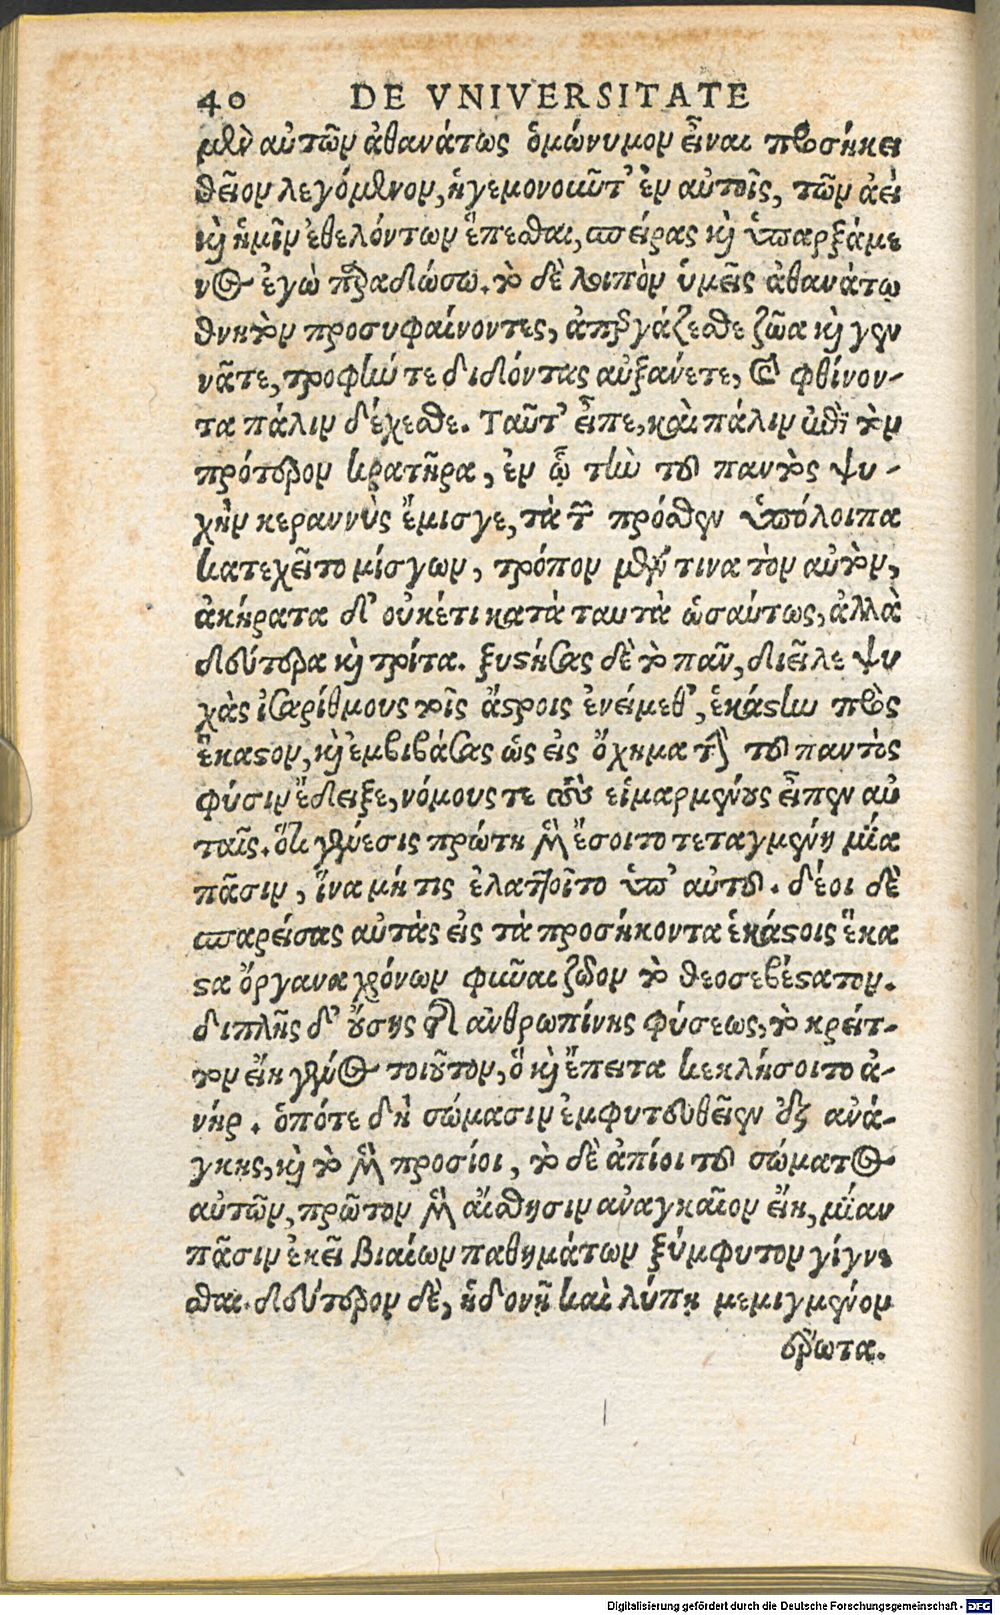 40 DE VNIVERSITATE
μὲν αὐτῶν ἀθανάτως ὁμώνυμον εἶναι προσήκει
θεῖον λεγόμενον, ἡγεμονοῦντ' ἐν αὐτοῖς, τῶν ἀεὶ
κὶ ἡμῖν ἐθελόντων ἕπεσθαι, σπείρας κὶ ὑπαρξάμε
νος ἐγὼ παραδώσω. τὸ δὲ λοιπὸν ὑμεῖς ἀθανάτῳ
θνητὸν προσυφαίνοντες, ἀπεργάζεσθε ζῶα κὶ γεν
νᾶτε, τροφήν τε διδόντες αὐξάνετε, καὶ φθίνον-
τα πάλιν δέχεσθε. Ταῦτ' εἶπε, καὶ πάλιν ἐπὶ τὸν
πρότερον κρατῆρα, ἐν ᾧ τὴν τοῦ παντὸς ψυ-
χὴν κεραννὺς ἔμισγε, τὰ τῶν πρόσθεν ὑπόλοιπα
κατεχεῖτο μίσγων, τρόπον μέν τινα τὸν αὐτὸν,
ἀκήρατα δ' οὐκέτι κατὰ ταυτὰ ὡσαύτως, ἀλλὰ
δεύτερα κὶ τρίτα. ξυστήσας δὲ τὸ πᾶν, διεῖλε ψυ
χὰς ἰσαρίθμους τοῖς ἄστροις ἐνείμεθ', ἑκάστην πρὸς
ἕκαστον, κὶ ἐμβιβάσας ὡς εἰς ὄχημα τὴν τοῦ παντὸς
φύσιν ἔδειξε, νόμους τε τοὺς εἱμαρμένους εἶπεν αὐ
ταῖς. ὅτι γένεσις πρώτη μὲν ἔσοιτο τεταγμένη μία
πᾶσιν, ἵνα μή τις ἐλαττοῖτο ὑπ' αὐτοῦ. δέοι δὲ
σπαρείσας αὐτὰς εἰς τὰ προσήκοντα ἑκάστοις ἕκα
στα ὄργανα χρόνων φῦναι ζῶον τὸ θεοσεβέστατον.
διπλῆς δ' οὔσης τῆς ἀνθρωπίνης φύσεως, τὸ κρεῖτ-
τον εἴη γένος τοιοῦτον, ὃ κὶ ἔπειτα κεκλήσοιτο ἀ-
νήρ. ὁπότε δὴ σώμασιν ἐμφυτευθεῖεν ἐξ ἀνά-
γκης, κὶ τὸ μὲν προσίοι, τὸ δὲ ἀπίοι τοῦ σώματος
αὐτῶν, πρῶτον μὲν αἴσθησιν ἀναγκαῖον εἴη, μίαν
πᾶσιν ἐκεῖ βιαίων παθημάτων ξύμφυτον γίγνε
σθαι. δεύτερον δὲ, ἡδονῇ καὶ λύπῃ μεμιγμένον
ἔρωτα.
Digitalisierung gefördert durch die Deutsche Forschungsgemeinschaft - DFG